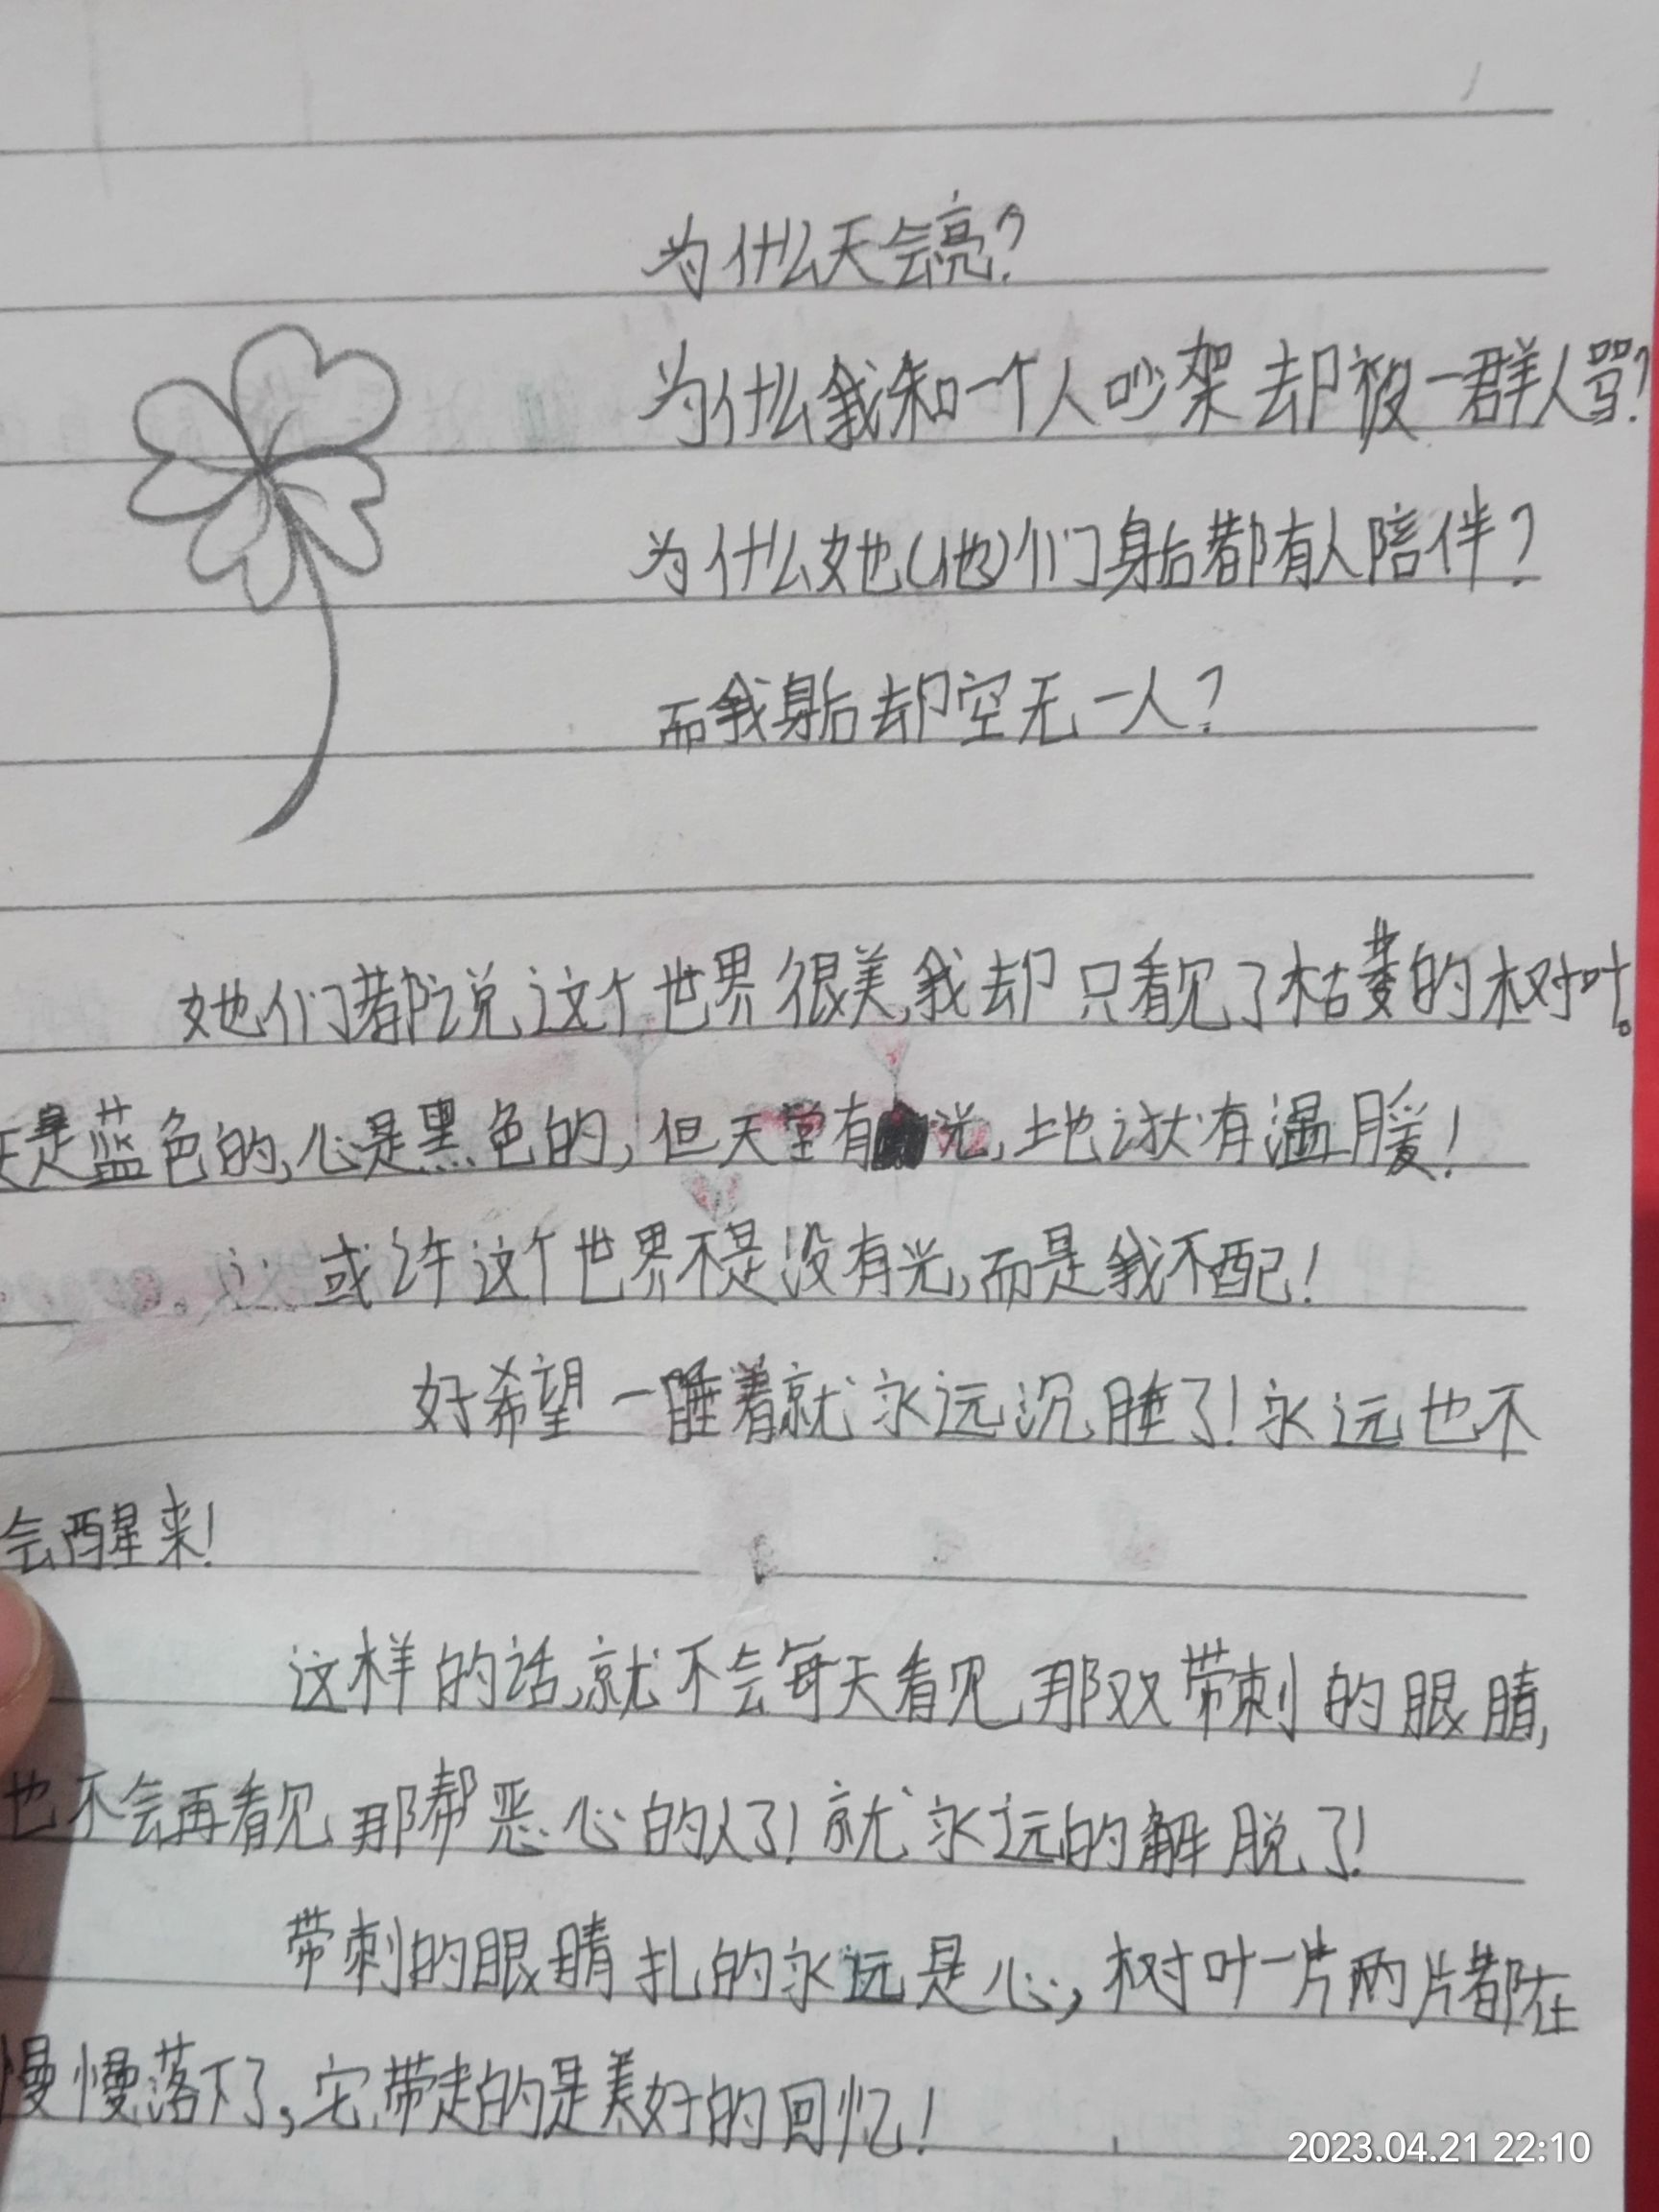 为什么天会亮?
为什么我和一个人吵架却被一群人骂?
为什么她(他)们身后都有人陪伴?
而我身后却空无一人?
她们都说这个世界很美,我却只看见了枯萎的树叶。
天是蓝色的,心是黑色的,但天堂有光,地狱有温暖!
或许这个世界不是没有光,而是我不配!
好希望一睡着就永远沉睡了!永远也不
会醒来!
这样的话,就不会每天看见那双带刺的眼睛,
也不会再看见那帮恶心的人了!就永远的解脱了!
带刺的眼睛扎的永远是心,树叶一片两片都在
慢慢落下了,它带走的是美好的回忆!
2023.04.21 22:10